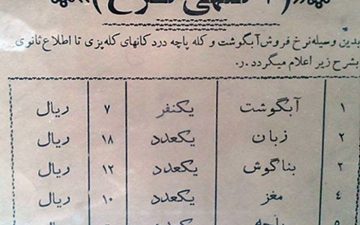 بدین وسیله نرخ فروش آبگوشت و کله پاچه در دکانهای کله پزی تا اطلاع ثانوی
بشرح زیر اعلام میگردد.
۱ آبگوشت یکنفر ۷ ریال
۲ زبان یکعدد ۱۸ ریال
۳ بناگوش یکعدد ۱۲ ریال
۴ مغز یکعدد ۱۰ ریال